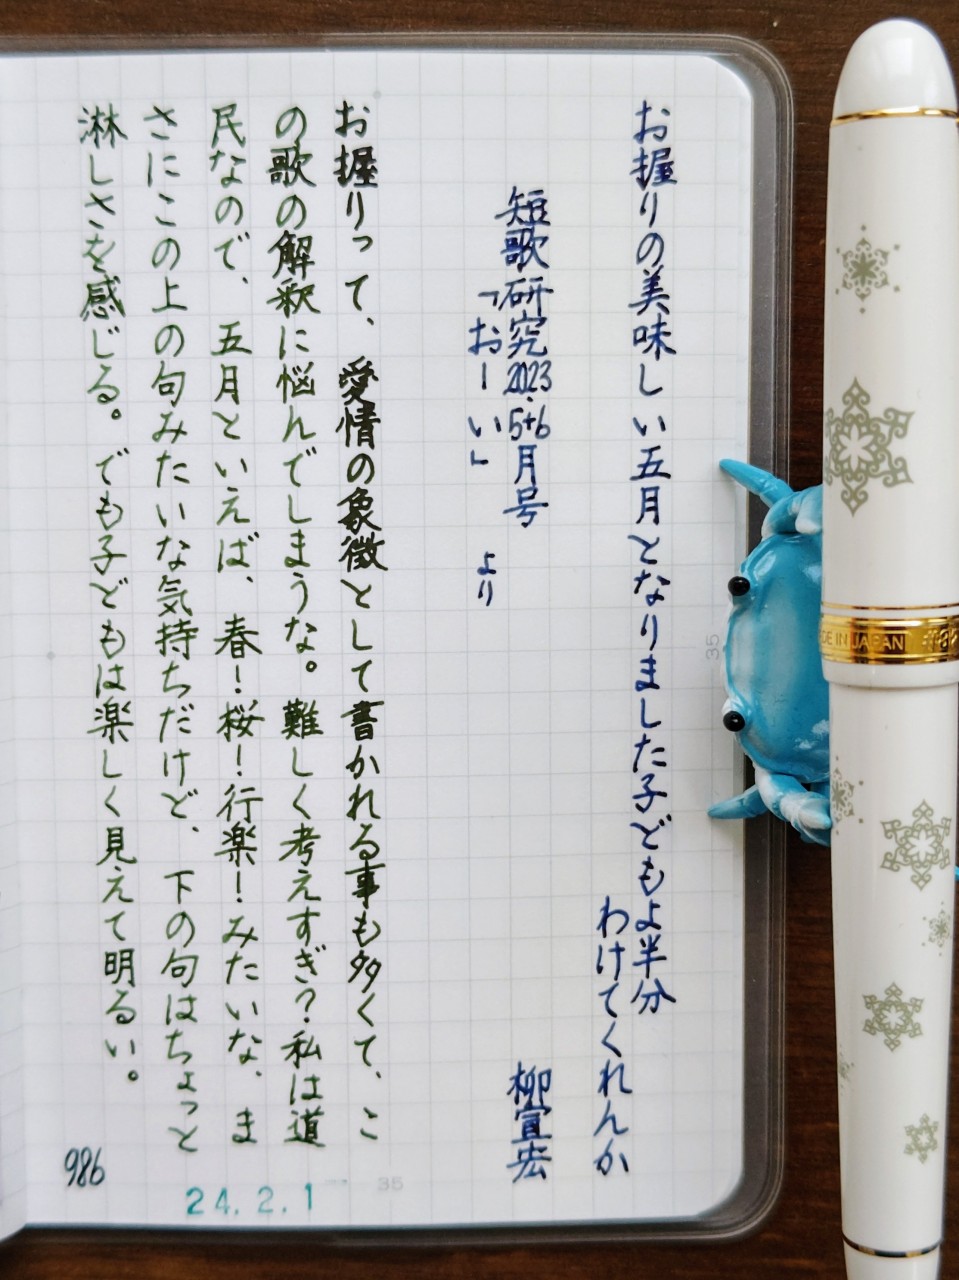 お握りの美味しい五月となりました子どもよ半分
わけてくれんか
柳宣宏
短歌研究2023.5+6月号
「おーい」より
お握りって、愛情の象徴として書かれる事も多くて、こ
の歌の解釈に悩んでしまうな。難しく考えすぎ?私は道
民なので、五月といえば、春!桜!行楽!みたいな、ま
さにこの上の句みたいな気持ちだけど、下の句はちょっと
淋しさを感じる。でも子どもは楽しく見えて明るい。
986
24.2.1
35
35
MADE IN JAPAN